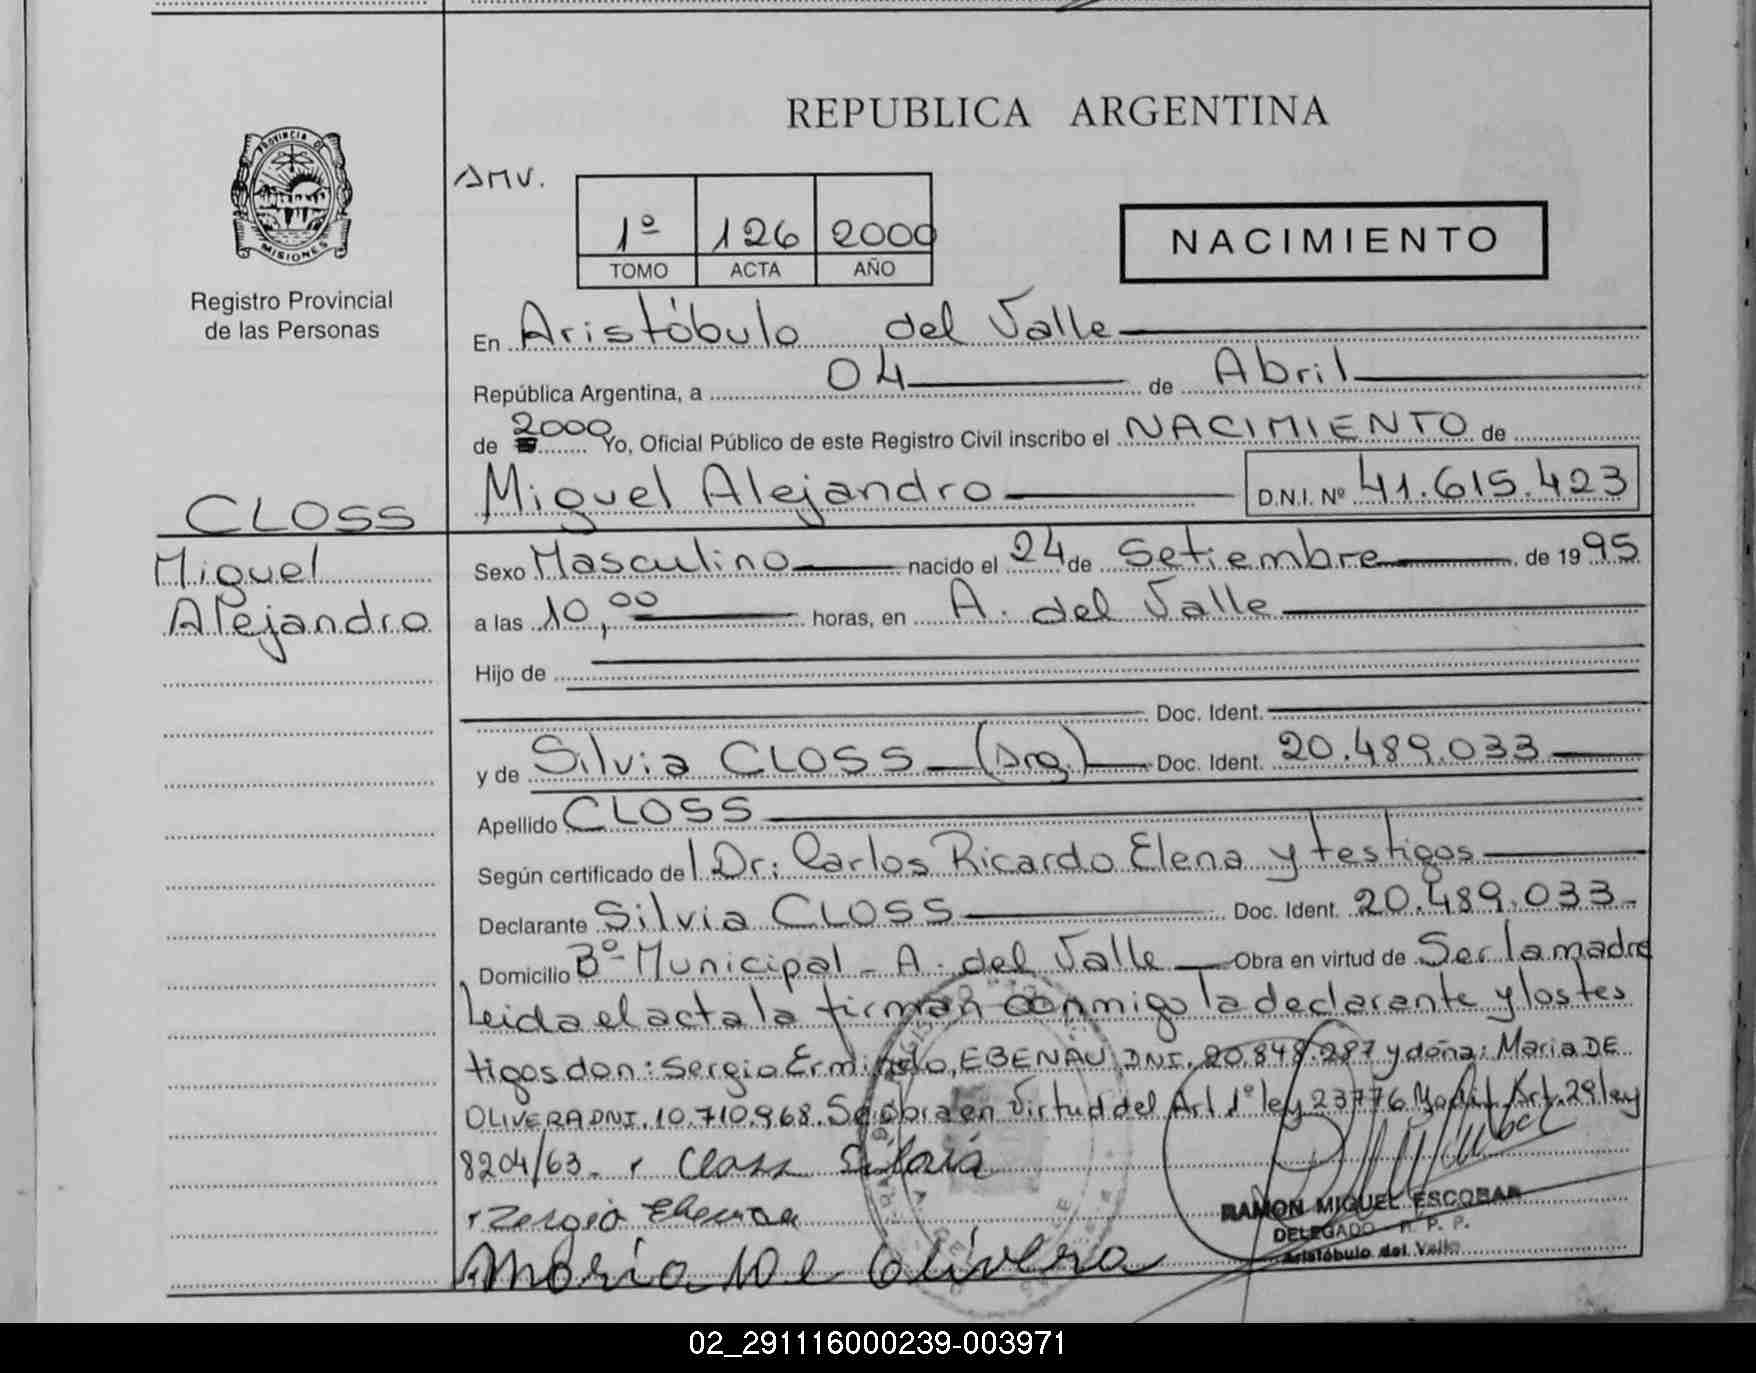 REPUBLICA ARGENTINA
PROVINCIA DE
MISIONES
Registro Provincial
de las Personas
AMV.
1º 126 2000
TOMO ACTA AÑO
NACIMIENTO
En Aristóbulo del Valle
República Argentina, a 04 de Abril
de 2000 Yo, Oficial Público de este Registro Civil inscribo el NACIMIENTO de
Miguel Alejandro D.N.I. Nº 41.615.423
CLOSS
Miguel
Alejandro
Sexo Masculino nacido el 24 de Setiembre de 1995
a las 10,00 horas, en A. del Valle
Hijo de
Doc. Ident.
y de Silvia CLOSS (Arg.) Doc. Ident. 20.489.033
Apellido CLOSS
Según certificado del Dr: Carlos Ricardo Elena y testigos
Declarante Silvia CLOSS Doc. Ident. 20.489.033-
Domicilio Bº Municipal - A. del Valle Obra en virtud de Ser la madre
Leida el acta la firman conmigo la declarante y los tes
tigos don: Sergio Ermindo, EBENAU, DNI. 20.848.287 y doña: Maria DE
OLIVERA DNI. 10.710.968. Se obra en Virtud del Art 1º ley 23776 Modif. Art. 29 ley
8204/63- Closs Silvia
Sergio Ebenau
Maria De Olivera
RAMON MIGUEL ESCOBAR
DELEGADO R. P. P.
Aristóbulo del Valle
02_291116000239-003971